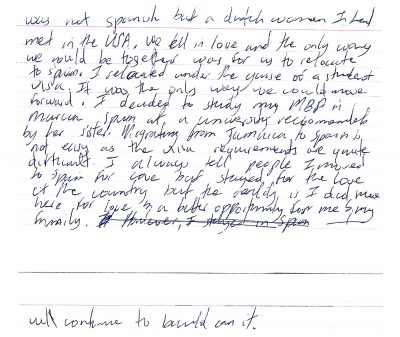 was not spanish but a dutch women I had
met in the USA. We fell in love and the only way
we would be together was for us to relocate
to spain. I relocated under the guise of a student
visa. It was the only way we could move
forward. I decided to study my MBA in
Murcia Spain at a university recommended
by her sister. Migrating from Jamaica to Spain is
not easy as the visa requirements are quite
difficult. I always tell people I moved
to Spain for love but stayed for the love
of the country but the reality is I did move
here for love & a better opportunity for me & my
family. However, I stayed in Spain
will continue to build on it.